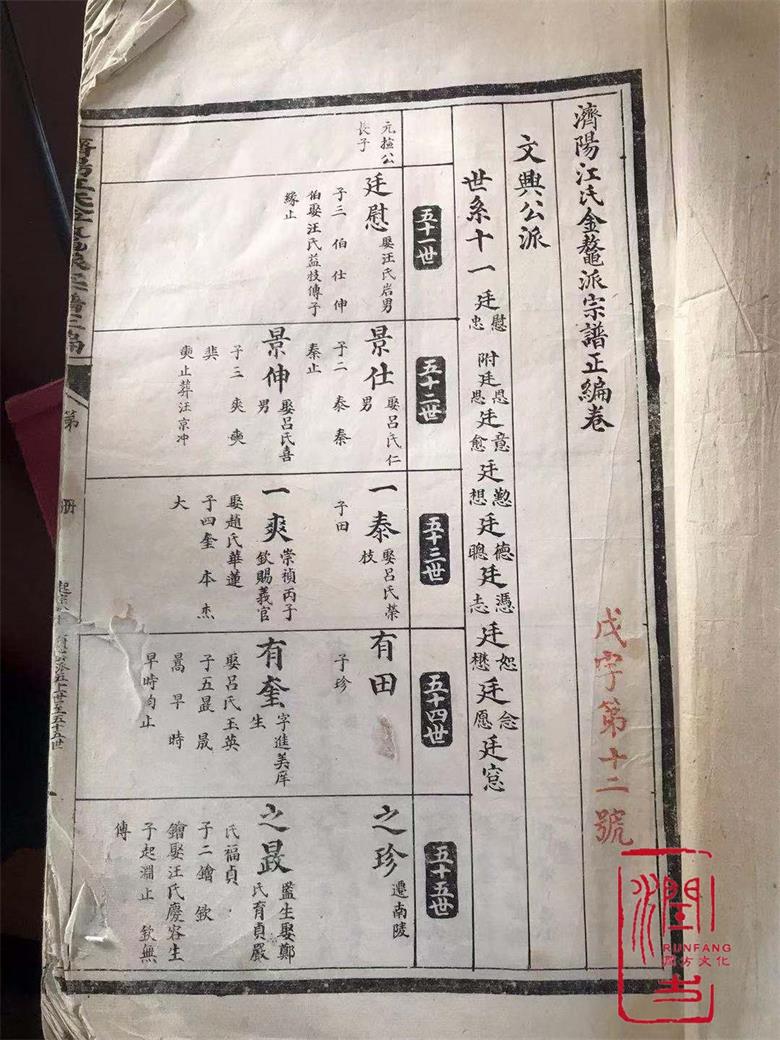 濟陽江氏金鼇派宗譜正編卷
戊字第十二號
文興公派
世系十一
廷慰
忠
附廷恩
恩
廷意
愈
廷懃
想
廷德
聰
廷憑
志
廷恕
懋
廷念
愿
廷窓
五十一世
五十二世
五十三世
五十四世
五十五世
元搃公
長子
廷慰
娶汪氏岩男
子三 伯 仕 伸
伯娶汪氏益枝傳子
緣止
景仕
娶呂氏仁
男
子二 泰 秦
秦止
景伸
娶呂氏喜
男
子三 爽 奭
奭止葬汪京冲
一泰
娶呂氏榮
枝
子田
一爽
崇禎丙子
欽賜義官
娶趙氏華蓮
子四奎 本 杰
大
有田
子珍
有奎
字進美庠
生
娶呂氏玉英
子五晸 晟
暠 早 時
早時向止
之珍
遷南陵
之晸
監生娶鄭
氏育貞嚴
氏福貞
子二鐀 欽
鐀娶汪氏慶容生
子起淵止 欽無
傳
第
冊
潤方
RUNFANG
潤方文化